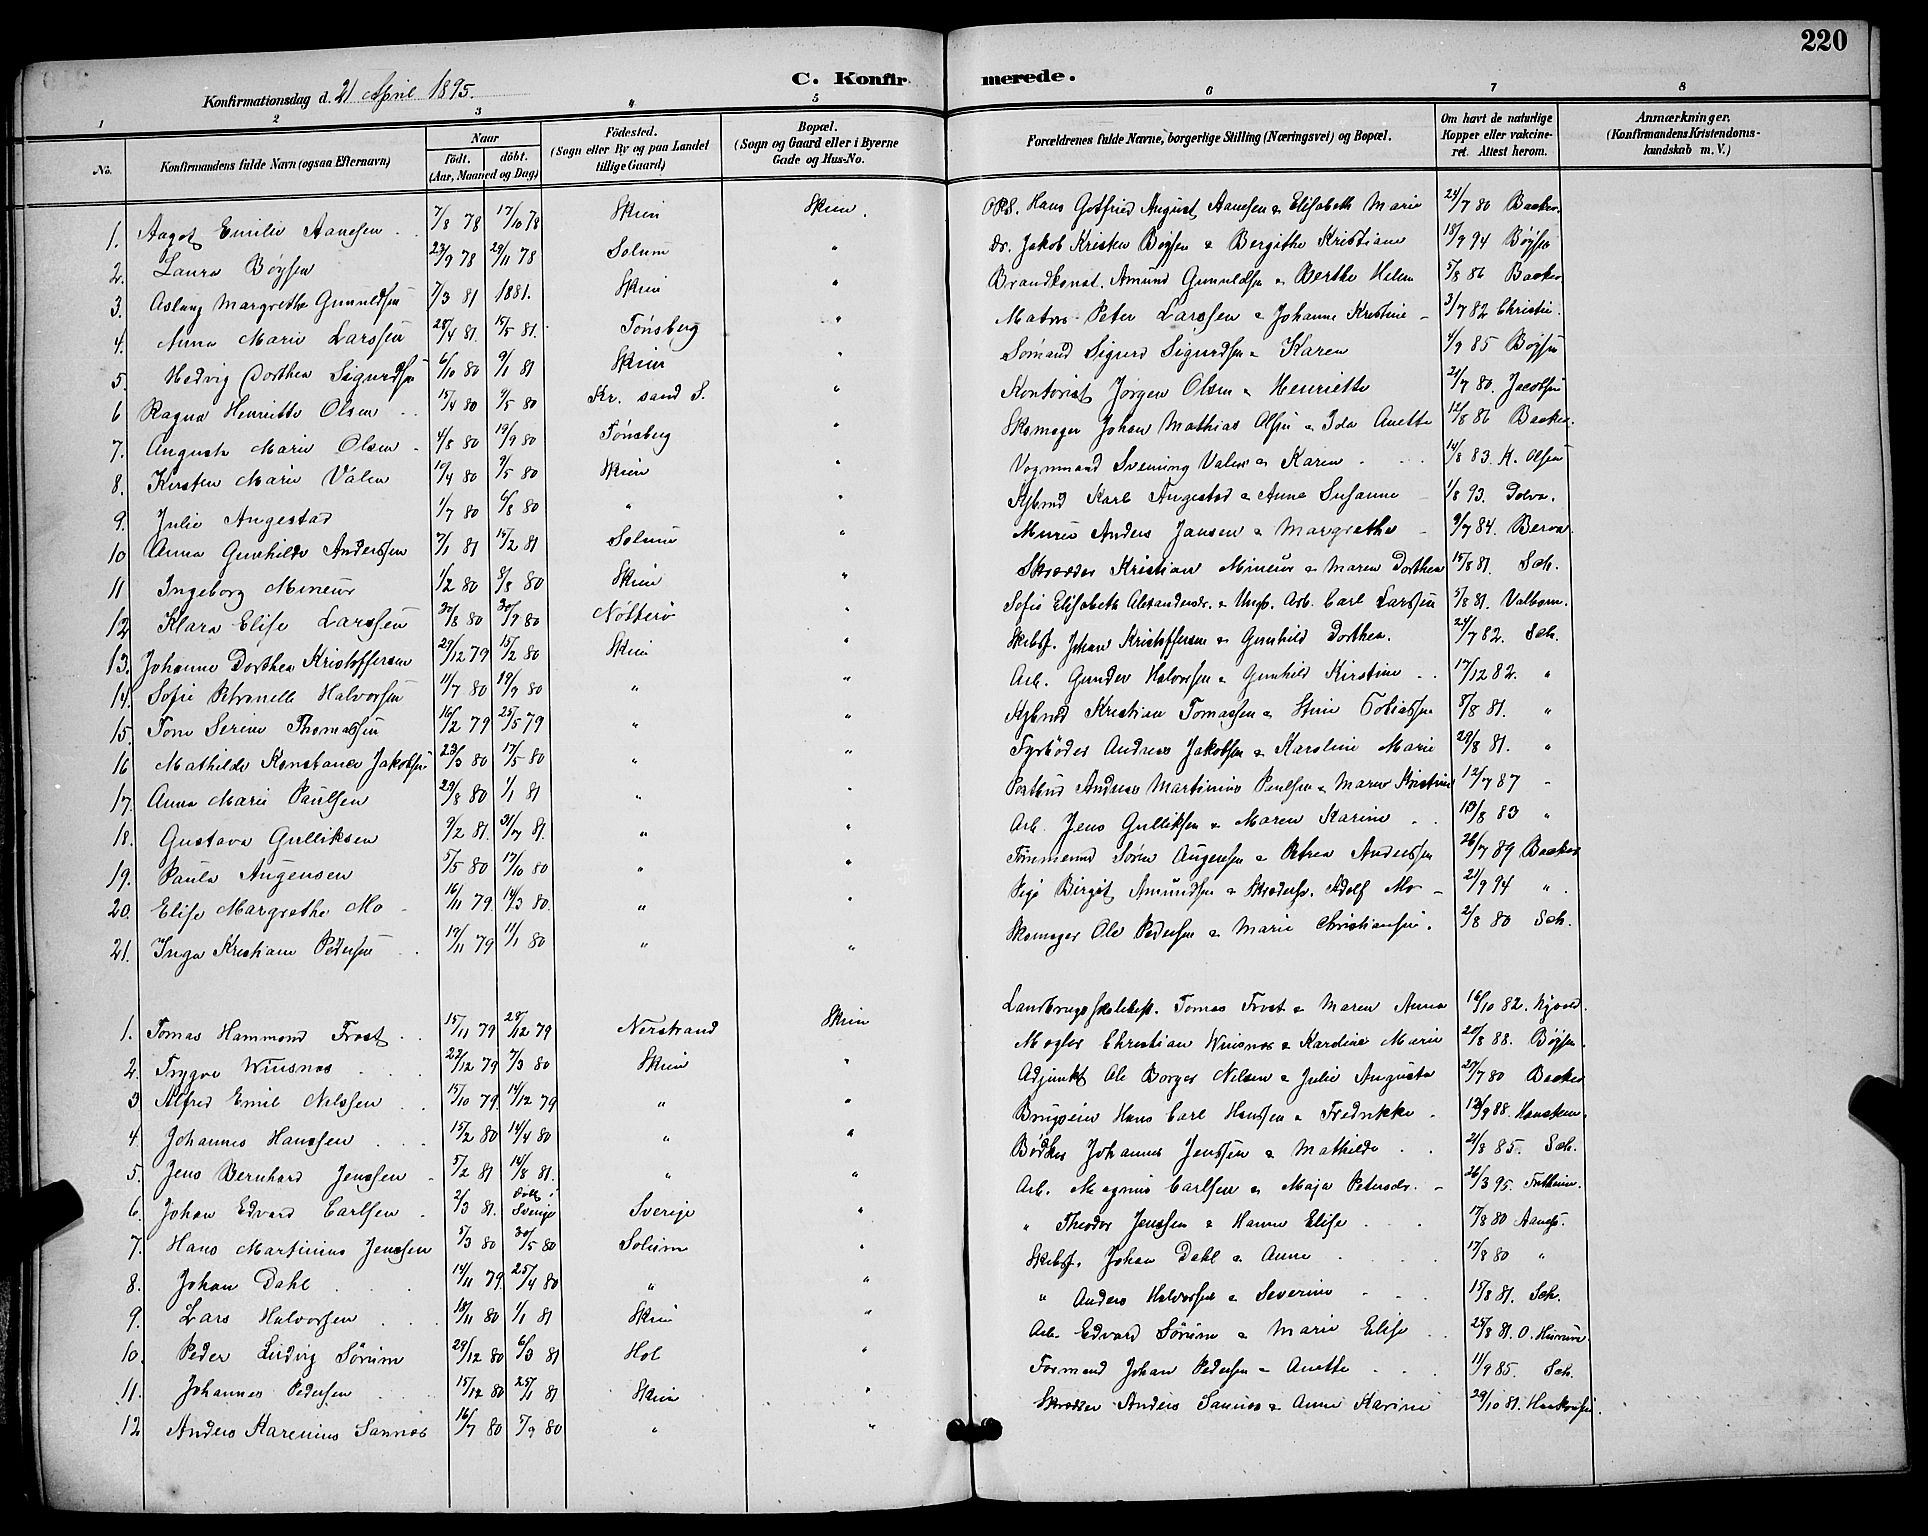 220
C. Konfirmerede.
Konfirmationsdag d. 21 April 1895.
1 2 3 4 5 6 7 8
No. Konfirmandens fulde Navn (ogsaa Efternavn) Naar födt. döbt. (Aar, Maaned og Dag) Födested. (Sogn eller By og paa Landet tillige Gaard) Bopæl. (Sogn og Gaard eller i Byerne Gade og Hus-No. Forældrenes fulde Navne, borgerlige Stilling (Næringsvei) og Bopæl. Om havt de naturlige Kopper eller vakcineret. Attest herom. Anmærkninger. (Konfirmandens Kristendomskundskab m. V.)
1. Aagot Emilie Aanesen 7/8 78 17/10 78 Skien Skien. Hans Gotfried August Aanesen & Elisabeth Marie 24/7 80 Backer.
2. Laura Böysen 23/9 78 29/11 78 Solum " Dr. Jakob Kristen Böysen & Bergithe Kristiane 18/9 94 Böysen
3. Aslaug Margrethe Gunuldsen 7/3 81 1881. Skien " Brandkonst. Amund Gunuldsen & Berthe Helene 5/8 86 Backer
4. Anna Marie Larssen 28/4 81. 15/5 81. Tönsberg " Matros Peter Larssen & Johanne Kristine 3/7 82 Christie.
5. Hedvig Dorthea Sigurdsen 6/10 80 9/1 81 Skien " Sömand Sigurd Sigurdsen & Karen 4/9 85 Boysen
6 Ragna Henriette Olsen 15/4 80 9/5 80 Kr.sand S. " Kontorist Jörgen Olsen & Henriette 21/7 80. Jacobsen
7. Augusta Marie Olsen 4/8 80 19/9 80 Tönsberg " Skomager Johan Mathias Olsen & Ida Anette 12/8 86 Backer.
8. Kirsten Marie Valen 10/4 80 9/5 80 Skien " Vognmand Svenning Valen & Karen 14/8 83. K. Olsen
9. Julie Angestad 1/7 80 6/8 80 " " Kjbmd Karl Angestad & Anne Susanne 1/8 93. Dolva.
10 Anna Gunhilde Anderssen 7/1 81 15/2 81 Solum " Murer Anders Jansen & Margrethe 9/7 84. Berva
11 Ingeborg Mineur 1/2 80 8/8 80 Skien " Skrædder Kristian Mineur & Maren Dorthea 15/8 81. Sch.
12 Klara Elise Larssen 30/8 80 30/9 80 Nötterö " Sofie Elisabeth Alexandersdr. & Ungk. Arb. Carl Larssen 5/8 81. Valbom.
13. Johanne Dorthea Kristoffersen 29/12 79 15/2 80 Skien " Skibsf. Johan Kristoffersen & Gunhild Dorthea. 24/7 82. Sch.
14. Sofie Petronelle Halvorsen 11/7 80 19/9 80 " " Arb. Gunder Halvorsen & Gunhild Kirstine 17/12 82. "
15. Tone Serine Thomassen 16/2 79 25/5 79 " " Kjbmd Kristian Tomassen & Stine Tobiassen 5/8 81. "
16 Mathilde Konstance Jakobsen 23/3 80 17/5 80 " " Fyrböder Andreas Jakobsen & Karoline Marie 29/8 81. "
17. Anna Marie Paulsen 29/8 80 1/1 81 " " Postbud Andreas Martinius Paulsen & Maren Kristine 12/7 87 "
18. Gustava Gulliksen 9/2 81. 31/7 81. " " Arb. Jens Gulliksen & Maren Karine 19/8 83 "
19. Paula Augensen 5/5 80 17/10 80 " " Tömmermd Sören Augensen & Petrea Anderssen 26/7 89 Backer
20. Elise Margrethe Mo 16/11 79. 14/3 80. " " Pige Birgit Amundsen & Skrædersv. Adolf Mo 21/9 94 "
21. Inga Kristiane Pedersen 19/11 79 11/1 80 " " Skomager Ole Pedersen & Marie Christiansen. 2/8 80 Sch.
1. Tomas Hammond Frost 15/11 79 28/12 79 Nerstrand Skien Landbrugsskolebest. Tomas Frost & Maren Anna 16/10 82.
2. Trygve Wiisnes 22/12 79 7/3 80 Skien " Mægler Christian Wiisnes & Kardine Marie 20/8 88. Böysen.
3 Alfred Emil Nilssen 15/10 79. 14/12 79 " " Adjunkt Ole Borger Nilsen & Julie Augusta 27/7 80 Backer
4. Johannes Hanssen 15/2 80 14/4 80 " " Brugseier Hans Carl Hanssen & Fredrikke 12/9 88.
5. Jens Bernhard Jenssen 5/2 81 14/8 81. " " Bödker Johannes Jenssen & Mathilde 2/8 85. Sch.
6. Johan Edvard Carlsen 2/3 81. Döbt i Sverige Sverige " Arb. Magnus Carlsen & Maja Petersdr. 26/3 95.
7. Hans Martinius Jenssen 5/3 80 30/5 80 Solum " " Theodor Jenssen & Hanne Elise 17/8 80 Aanes.
8. Johan Dahl 14/11 79. 25/4 80 " " Skibsf. Johan Dahl & Anne 17/8 80 "
9. Lars Halvorsen 18/11 80 1/1 81 Skien " " Anders Halvorsen & Severine 15/8 81. Sch.
10. Peder Ludvig Sörum 29/12 80 6/3 81 Hol " Arb. Edvard Sörum & Marie Elise 25/8 81.
11. Johannes Pedersen 15/12 80 25/1 81 Skien " Formand Johan Pedersen & Anette 11/9 85. Sch.
12 Anders Karenius Sannes 16/7 80 5/9 80 " " Skrædder Anders Sannes & Anne Karine 29/10 81.